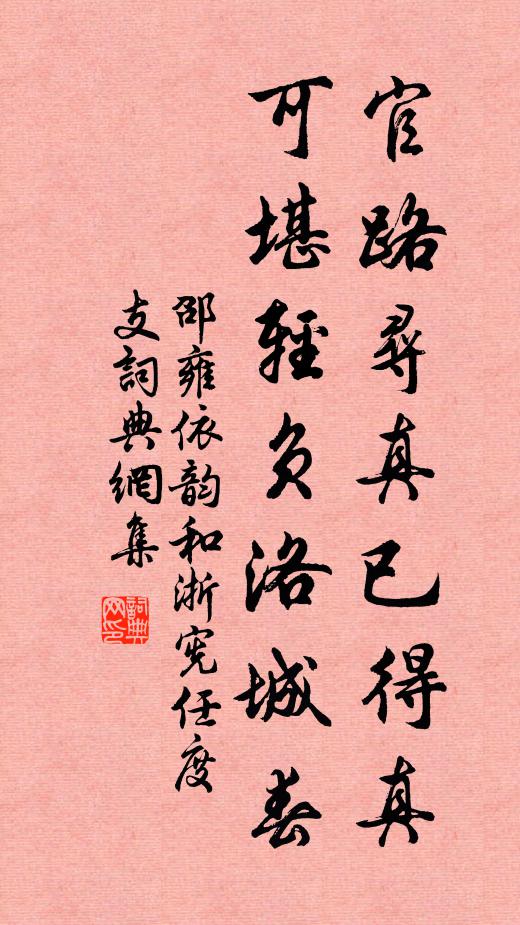 官路尋真已得真
可堪輕負洛城春
邵雍依韵和浙宪任度
支詞典網集
詞典网印